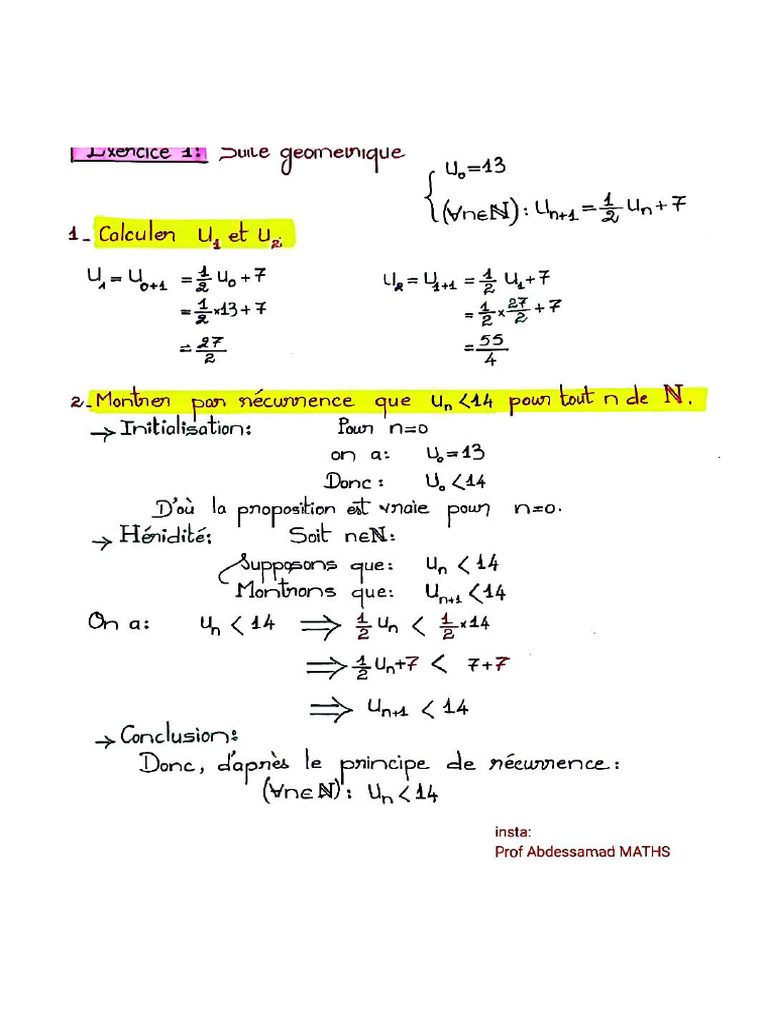 Exercice 1: Suite geometrique
{ U₀=13
(∀n∈ℕ): Uₙ₊₁ = 1/2 Uₙ + 7
1- Calculer U₁ et U₂.
U₁ = U₀₊₁ = 1/2 U₀ + 7
= 1/2 × 13 + 7
= 27/2
U₂ = U₁₊₁ = 1/2 U₁ + 7
= 1/2 × 27/2 + 7
= 55/4
2- Montrer par récurrence que Uₙ < 14 pour tout n de ℕ.
→ Initialisation: Pour n=0
on a: U₀=13
Donc: U₀ < 14
D'où la proposition est vraie pour n=0.
→ Héridité: Soit n∈ℕ:
Supposons que: Uₙ < 14
Montrons que: Uₙ₊₁ < 14
On a: Uₙ < 14 ⟹ 1/2 Uₙ < 1/2 × 14
⟹ 1/2 Uₙ + 7 < 7+7
⟹ Uₙ₊₁ < 14
→ Conclusion:
Donc, d'après le principe de récurrence:
(∀n∈ℕ): Uₙ < 14
insta:
Prof Abdessamad MATHS